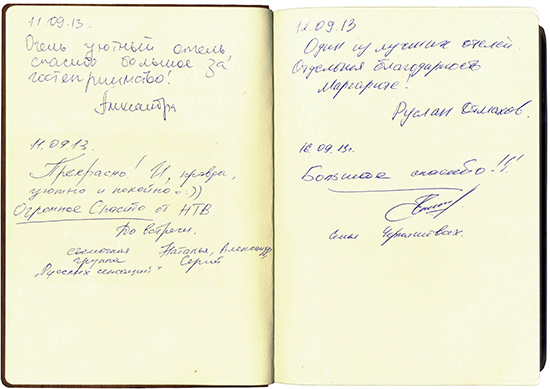 11.09.13.
Очень уютный отель
спасибо большое за
гостеприимство!
Александра
11.09.13
Прекрасно! И, правда,
уютно и покойно :))
Огромное Спасибо от НТВ.
До встречи.
съемочная Наталья, Александр
группа Сергей
„Русских сенсаций"
12.09.13
Один из лучших отелей.
Отдельная благодарность
Маргарите!
Руслан
16.09.13г.
Большое спасибо!!!
Семья